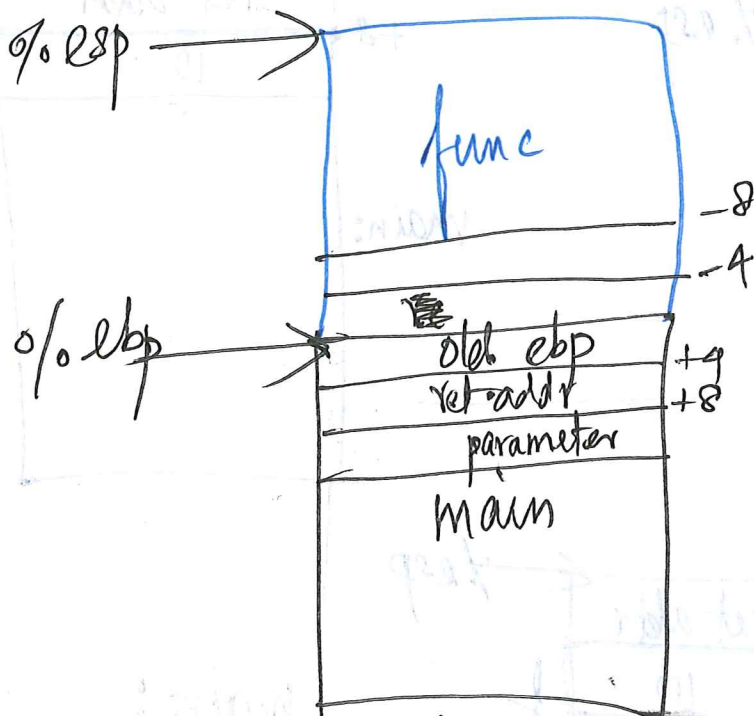 %esp
func
-8
-4
%ebp
old ebp
+4
ret-addr
+8
parameter
main